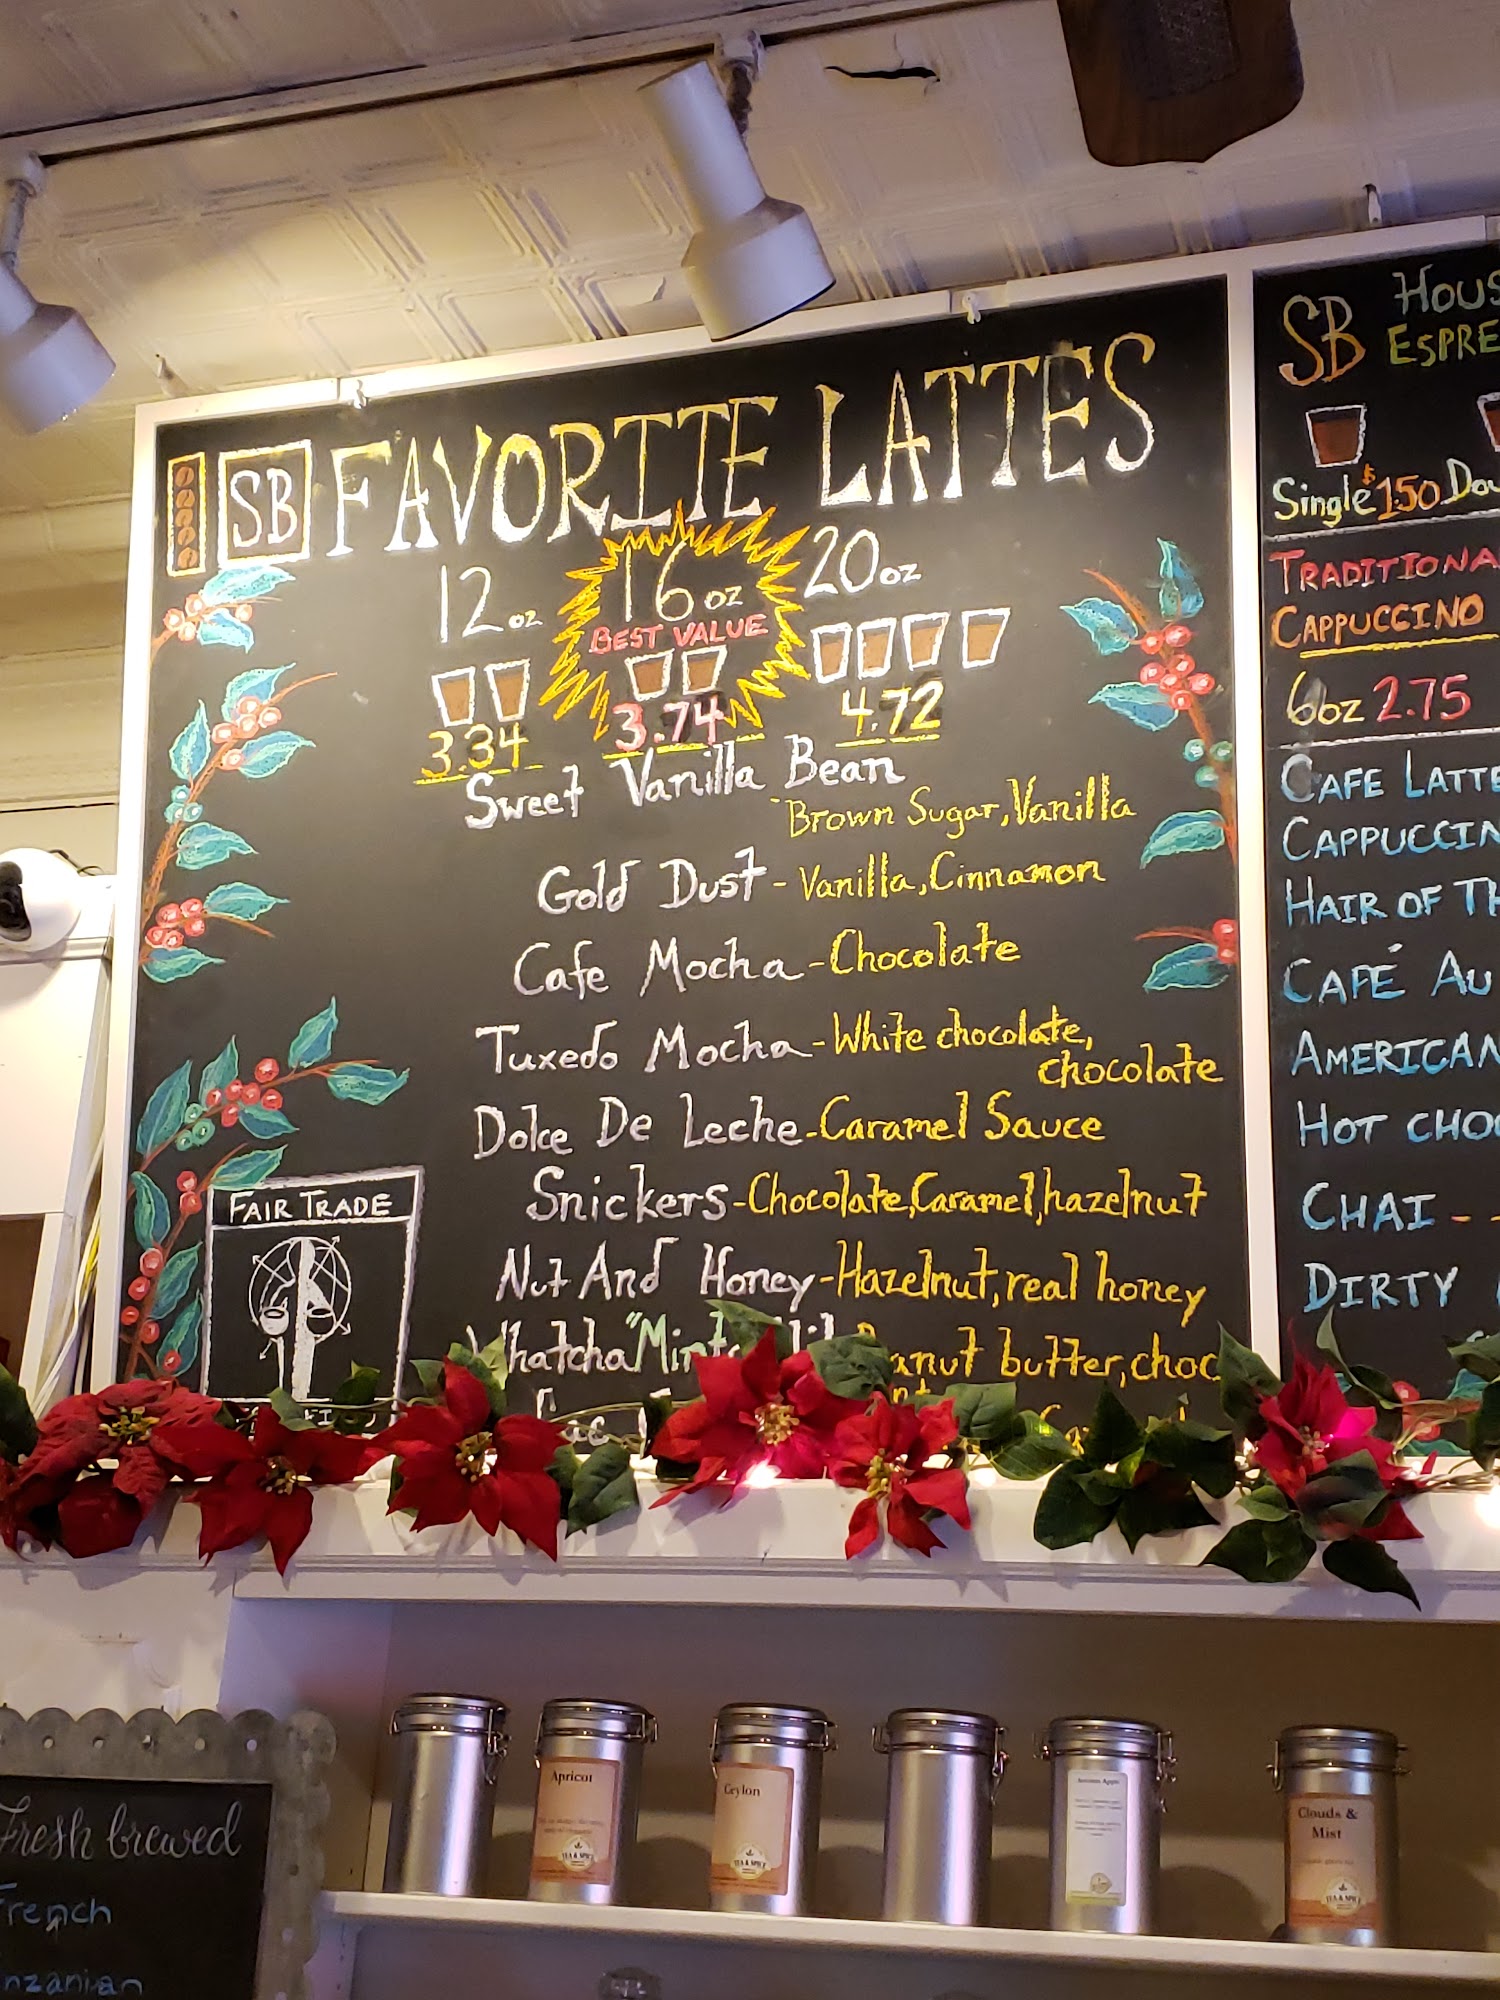 SB FAVORITE LATTES
12 oz 16 oz 20 oz
BEST VALUE
3.34 3.74 4.72
Sweet Vanilla Bean
Brown Sugar, Vanilla
Gold Dust - Vanilla, Cinnamon
Cafe Mocha - Chocolate
Tuxedo Mocha - White chocolate,
chocolate
Dolce De Leche - Caramel Sauce
Snickers - Chocolate, Caramel, hazelnut
Nut And Honey - Hazelnut, real honey
Whatcha "Mint
butter, choc
FAIR TRADE
SB HOUS
ESPRE
Single $1.50 Dou
TRADITIONA
CAPPUCCINO
6oz 2.75
CAFE LATTE
CAPPUCCIN
HAIR OF TH
CAFÉ AU
AMERICAN
HOT CHOC
CHAI - -
DIRTY
Apricot
TEA & SPICE
Ceylon
TEA & SPICE
Autumn Apple
Clouds &
Mist
TEA & SPICE
Fresh brewed
French
nzanian